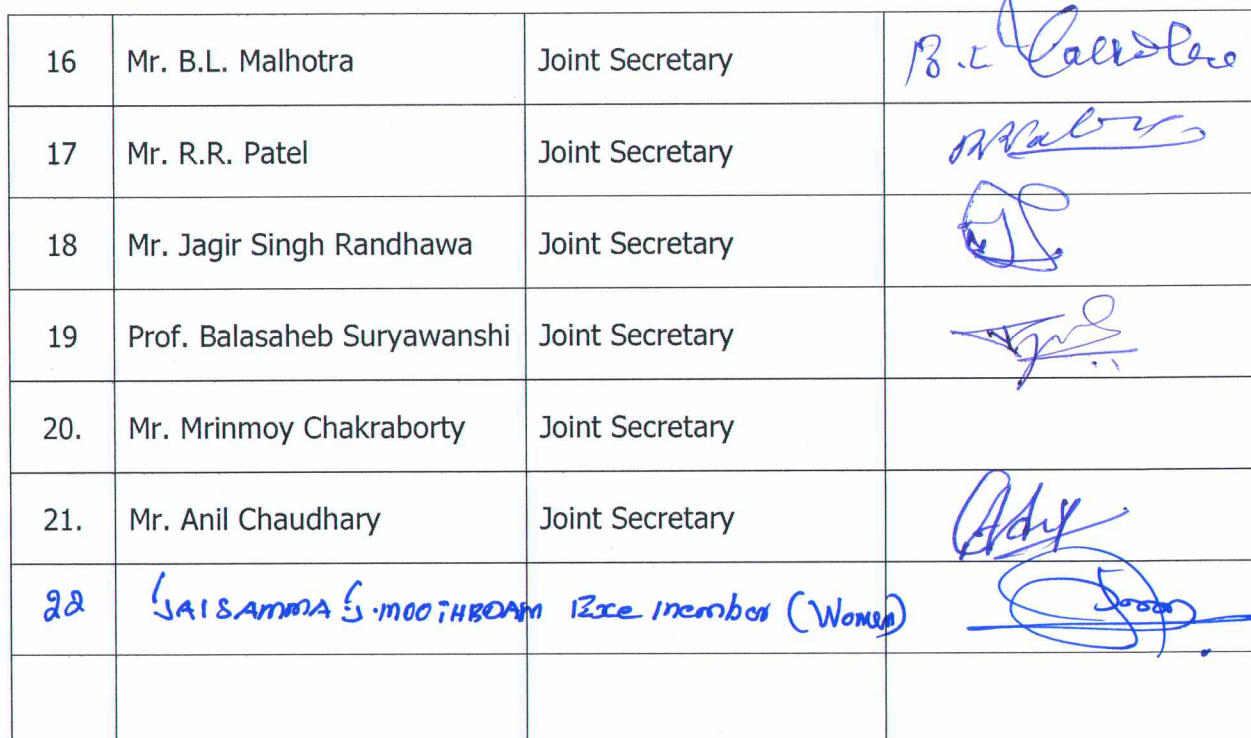 16 Mr. B.L. Malhotra Joint Secretary
17 Mr. R.R. Patel Joint Secretary
18 Mr. Jagir Singh Randhawa Joint Secretary
19 Prof. Balasaheb Suryawanshi Joint Secretary
20. Mr. Mrinmoy Chakraborty Joint Secretary
21. Mr. Anil Chaudhary Joint Secretary
22 JAISAMMA J. MOOTHEDAM Exe member (Women)